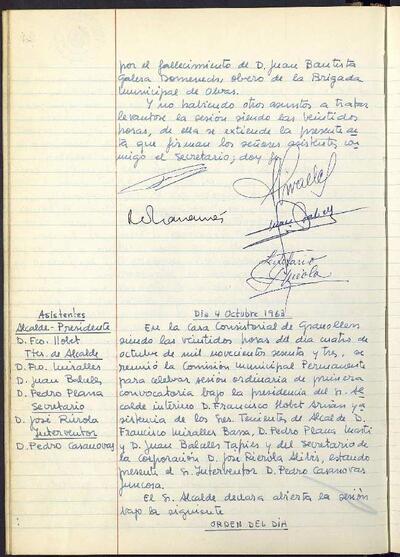 por el fallecimiento de D. Juan Bautista
Galera Domenech, obrero de la Brigada
municipal de Obras.
Y no habiendo otros asuntos a tratar
levantose la sesión siendo las veintidos
horas, de ella se extiende la presente ac-
ta que firman los señores asistentes con-
migo el Secretario; doy fe.
Asistentes
Alcalde-Presidente
D. Fco. Llobet
Ttes. de Alcalde
D. Fco. Miralles
D. Juan Balulls
D. Pedro Plana
Secretario
D. José Riérola
Interventor
D. Pedro Casanovas
Dia 4 Octubre 1963
En la Casa Consistorial de Granollers
siendo las veintidos horas del dia cuatro de
octubre de mil novecientos sesenta y tres, se
reunió la Comisión Municipal Permanente
para celebrar sesión ordinaria de primera
convocatoria bajo la presidencia del Sr. Al-
calde interino D. Francisco Llobet y a-
sistencia de los Sres. Tenientes de Alcalde D.
Francisco Miralles Bassa, D. Pedro Plana Marti
y D. Juan Balulls Tapies y del Secretario de
la Corporación D. José Riérola, estando
presente el Sr. Interventor D. Pedro Casanovas
Juncosa.
El Sr. Alcalde declara abierta la sesión
bajo la siguiente
ORDEN DEL DIA